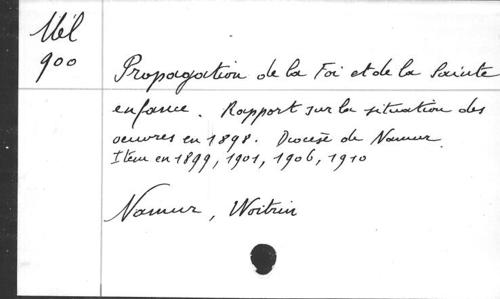 Mél
900
Propagation de la Foi et de la Sainte
enfance. Rapport sur la situation des
oeuvres en 1898. Diocèse de Namur.
Item en 1899, 1901, 1906, 1910
Namur, Woitrin